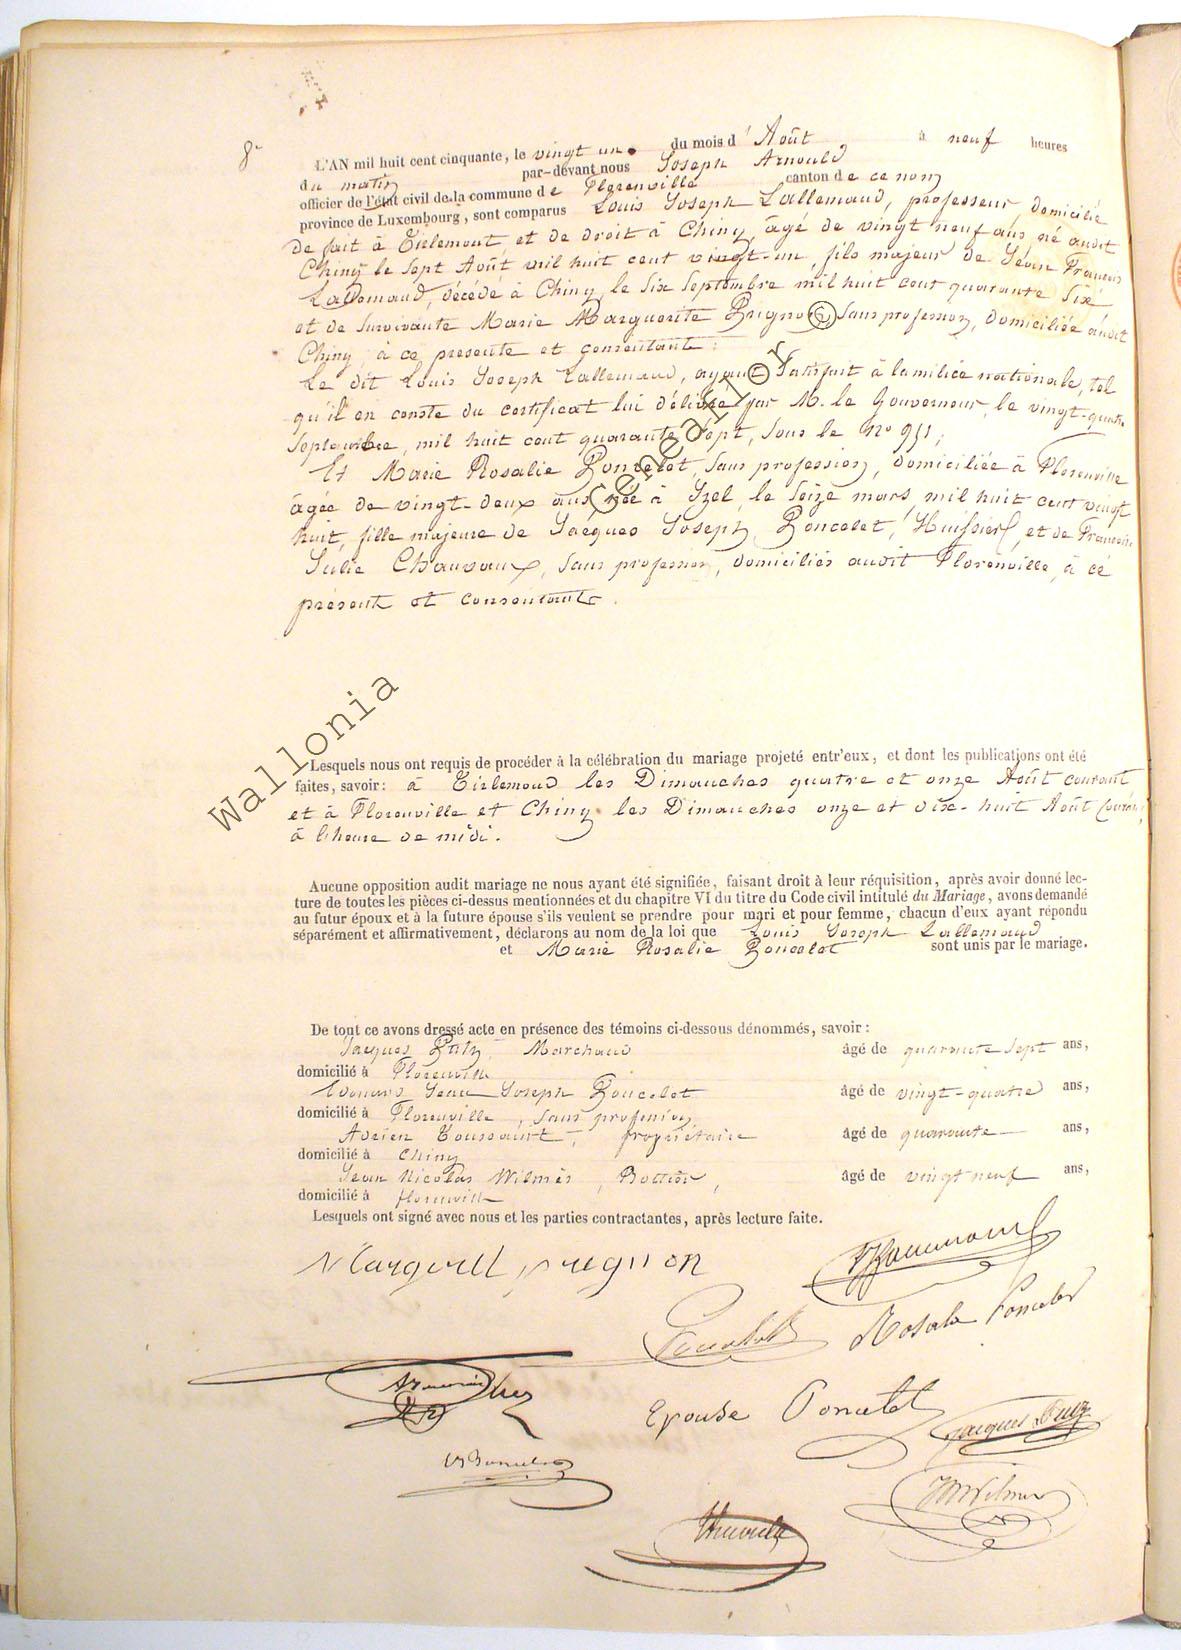 8e
L'AN mil huit cent cinquante, le vingt un du mois d'Août à neuf heures
du matin par-devant nous Joseph Arnould
officier de l'état civil de la commune de Florenville canton de ce nom
province de Luxembourg, sont comparus Louis Joseph Lallemand, professeur, domicilié
de fait à Tirlemont et de droit à Chiny, âgé de vingt neuf ans, né audit
Chiny le sept Août mil huit cent vingt-un, fils majeur de Jean François
Lallemand, décédé à Chiny le six Septembre mil huit cent quarante six
et de survivante Marie Marguerite Prignon, Sans profession, domiciliée audit
Chiny, à ce présente et consentante ;
Le dit Louis Joseph Lallemand, ayant satisfait à la milice nationale, tel
qu'il en conste du certificat lui délivré par M. le Gouverneur, le vingt-quatre
Septembre, mil huit cent quarante sept, sous le No 951,
Et Marie Rosalie Poncelet, sans profession, domiciliée à Florenville
âgée de vingt-deux ans née à Izel, le seize mars, mil huit cent vingt
huit, fille majeure de Jacques Joseph Poncelet, Huissier, et de Françoise
Julie Chauvaux, sans profession, domiciliés audit Florenville, à ce
présents et consentants.
Lesquels nous ont requis de procéder à la célébration du mariage projeté entr'eux, et dont les publications ont été
faites, savoir: à Tirlemond les Dimanches quatre et onze Août courant
et à Florenville et Chiny les Dimanches onze et dix-huit Août courant,
à l'heure de midi.
Aucune opposition audit mariage ne nous ayant été signifiée, faisant droit à leur réquisition, après avoir donné lec-
ture de toutes les pièces ci-dessus mentionnées et du chapitre VI du titre du Code civil intitulé du Mariage, avons demandé
au futur époux et à la future épouse s'ils veulent se prendre pour mari et pour femme, chacun d'eux ayant répondu
séparément et affirmativement, déclarons au nom de la loi que Louis Joseph Lallemand
et Marie Rosalie Poncelet sont unis par le mariage.
De tout ce avons dressé acte en présence des témoins ci-dessous dénommés, savoir:
Jacques Putz, Marchand âgé de quarante sept ans,
domicilié à Florenville
Edouard Jean Joseph Poncelet âgé de vingt-quatre ans,
domicilié à Florenville, sans profession
Adrien Toussaint, propriétaire âgé de quarante ans,
domicilié à Chiny
Jean Nicolas Wilmès, Bottier, âgé de vingt neuf ans,
domicilié à florenville
Lesquels ont signé avec nous et les parties contractantes, après lecture faite.
prégnon
Poncelet Rosalie Poncelet
Epouse Poncelet Jacques Putz
Poncelet
JN Wilmes
Arnould
Wallonia Genealor ©